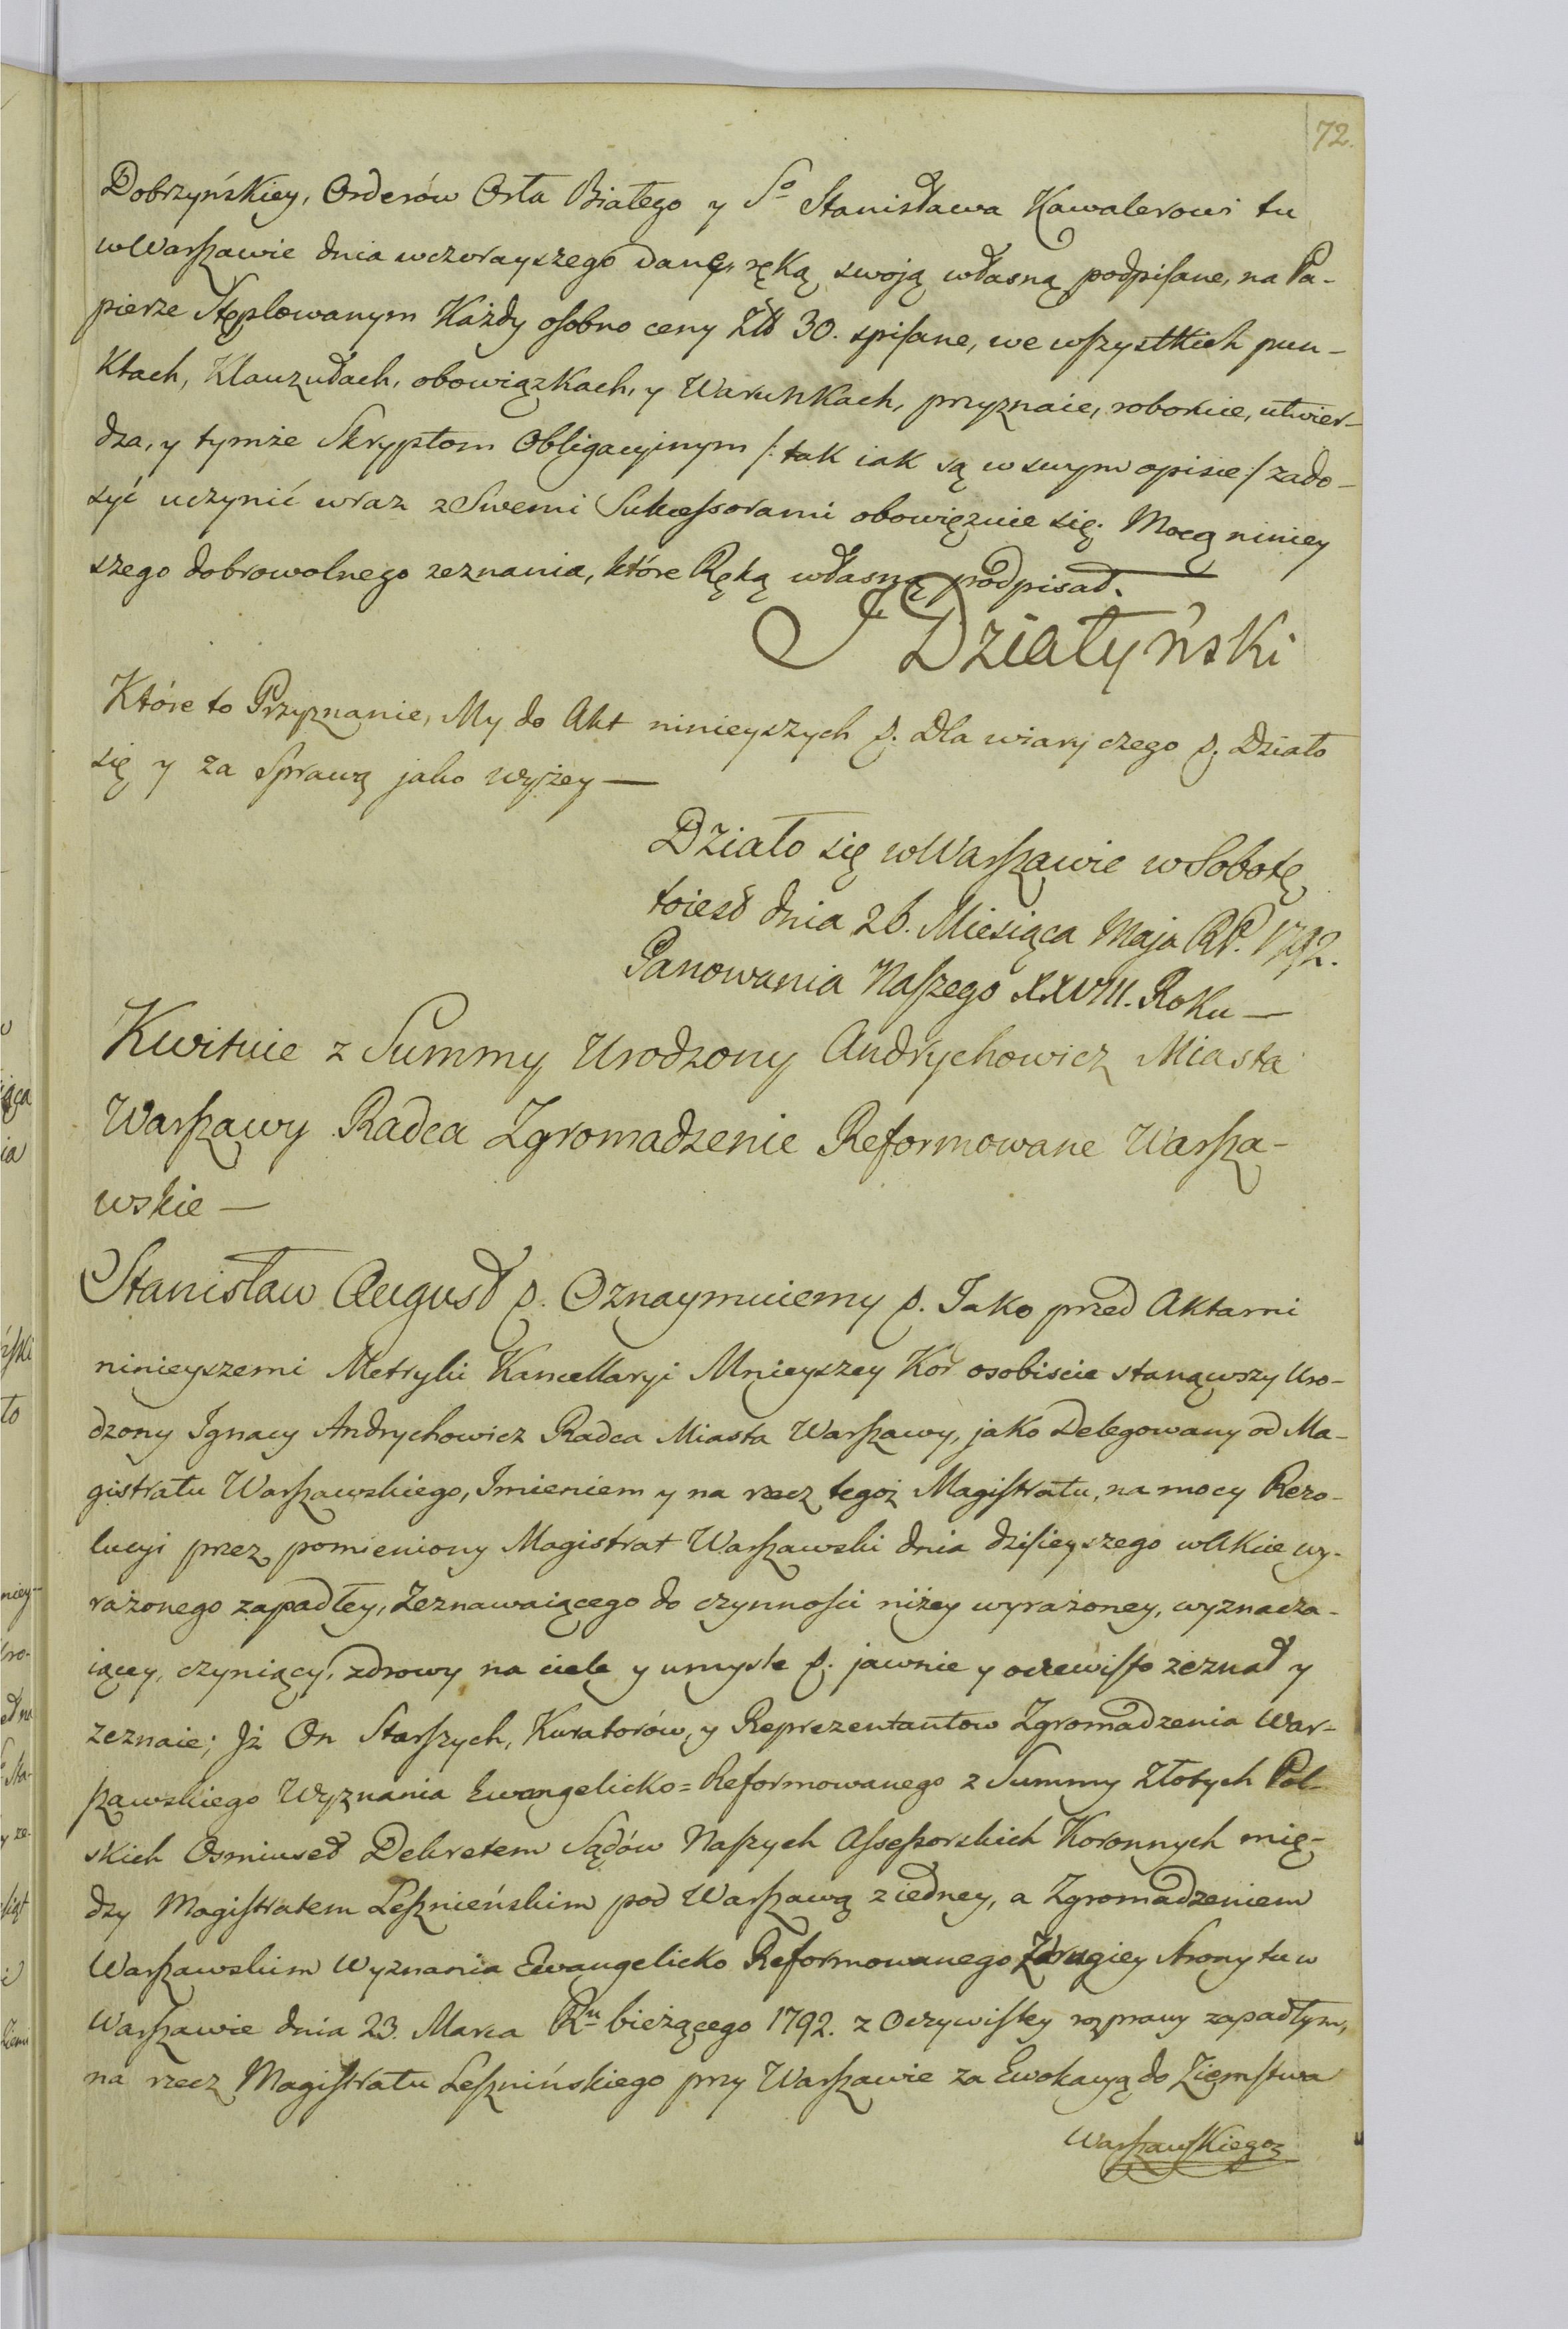 72.
Dobrzyńskiey, Orderów Orła Białego y S<sup>o</sup> Stanisława Kawalerowi tu
w Warszawie dnia wczorayszego dane, ręką swoją własną podpisane, na Pa-
pierze Stęplowanym Każdy osobno ceny Złł 30. spisane, we wszystkich pun-
ktach, Klauzułach, obowiązkach, y Warunkach, przyznaie, roboruie, utwier-
dza, y tymże Skryptom Obligacyjnym /: tak iak są w swym opisie / zado-
syć uczynić wraz z Swemi Sukcessorami obowięzuie się. Mocą niniey
szego dobrowolnego zeznania, które Ręką własną podpisał.
J Działyński
Które to Przyznanie, My do Akt ninieyszych p. Dla wiary czego p. Działo
się y za Sprawą jako wyżey —
Działo się w Warszawie w Sobotę
toiest dnia 26. Miesiąca Maja RP. 1792.
Panowania Naszego XXVIII. Roku —
Kwituie z Summy Urodzony Andrychowicz Miasta
Warszawy Radca Zgromadzenie Reformowane Warsza-
wskie —
Stanisław August p. Oznaymuiemy p. Jako przed Aktami
ninieyszemi Metryki Kancellaryi Mnieyszey Kor osobiscie stanąwszy Uro-
dzony Ignacy Andrychowicz Radca Miasta Warszawy, jako Delegowany od Ma-
gistratu Warszawskiego, Imieniem y na rzecz tegoż Magistratu, na mocy Rezo-
lucyi przez pomieniony Magistrat Warszawski dnia dzisieyszego w Akcie wy-
rażonego zapadłey, Zeznawaiącego do czynności niżey wyrażoney, wyznacza-
iącey, czyniący, zdrowy na ciele y umyśle p. jawnie y oczewisto zeznał y
zeznaie; Iż On Starszych, Kuratorów, y Reprezentantow Zgromadzenia War-
szawskiego Wyznania Ewangelicko=Reformowanego z Summy Złotych Pol
skich Osmiuset Dekretem Sądów Naszych Assessorskich Koronnych mię-
dzy Magistratem Leszznieńskim pod Warszawą z iedney, a Zgromadzeniem
Warszawskim Wyznania Ewangelicko Reformowanego z drugiey strony tu w
Warszawie dnia 23. Marca R<sup>u</sup> bieżącego 1792. z Oczywistey rozprawy zapadłym,
na rzecz Magistratu Lesznińskiego przy Warszawie za Ewokacyą do Ziemstwa
Warszawskiego